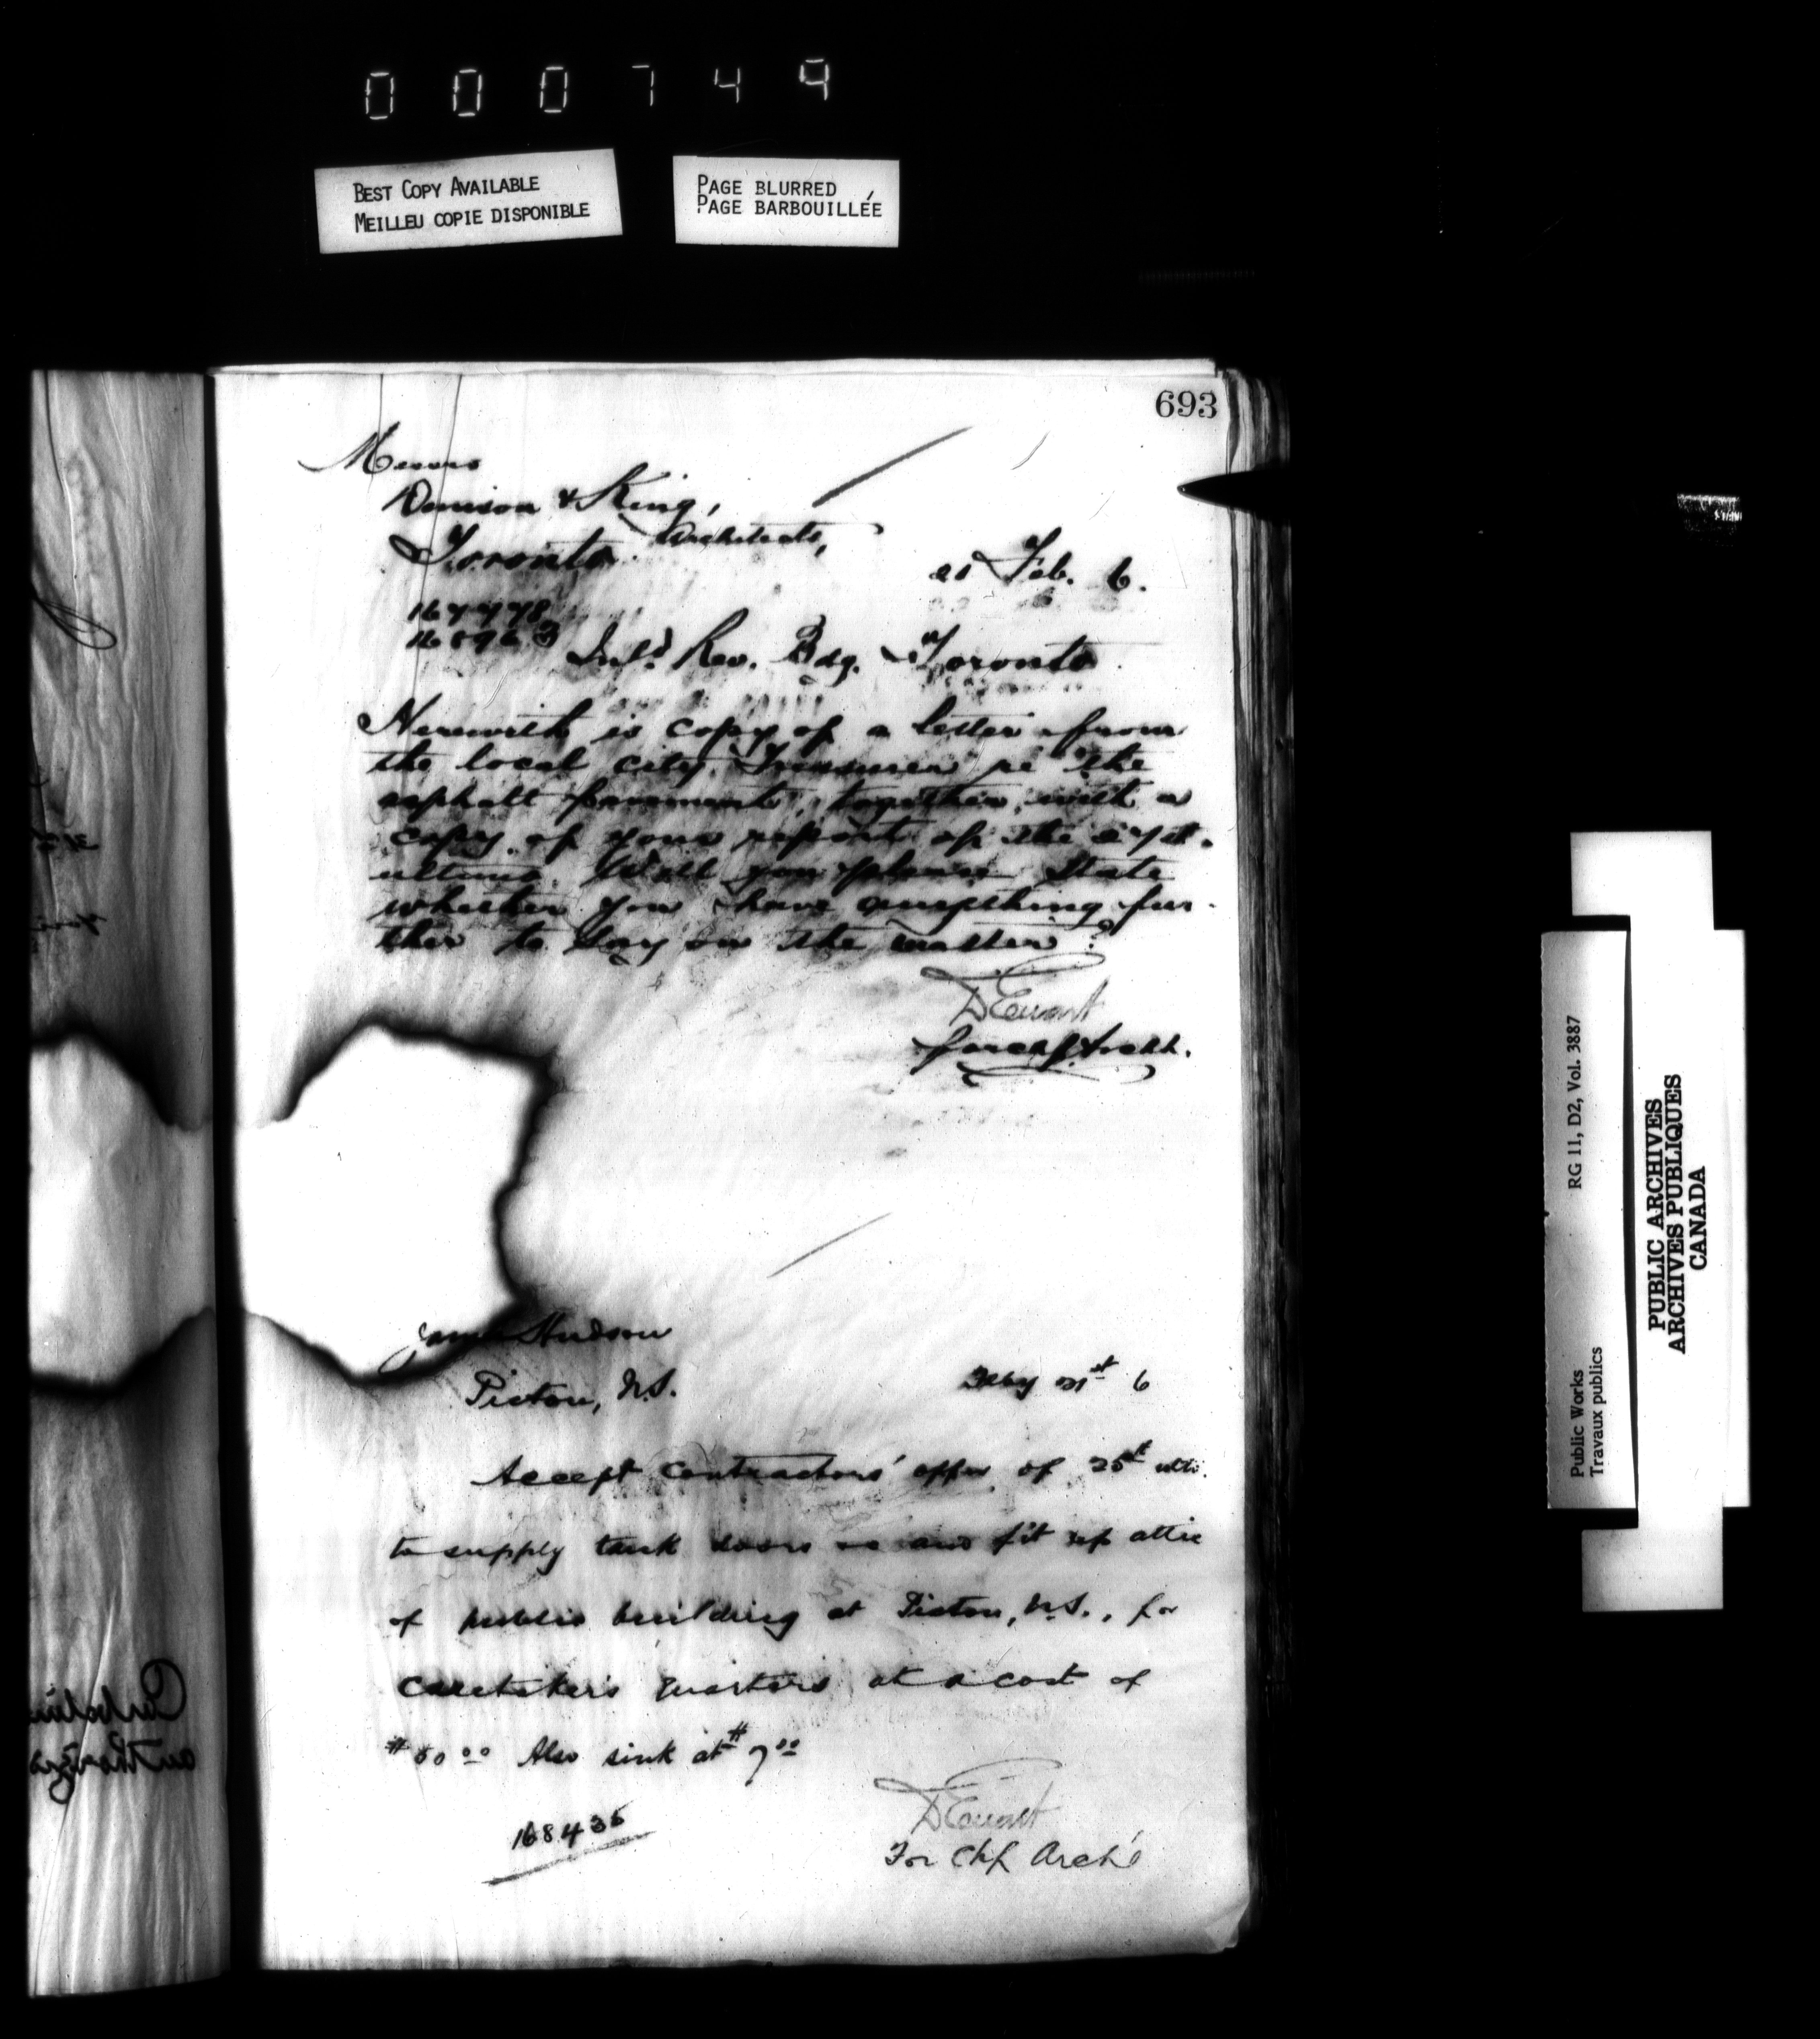 000749
BEST COPY AVAILABLE
MEILLEU COPIE DISPONIBLE
PAGE BLURRED
PAGE BARBOUILLÉE
693
Messrs
Denison & King,
Architects,
Toronto.
21 Feb. 6.
167778
168963
Inl'd Rev. Bdg. Toronto
Herewith is copy of a letter from
the local city Treasurer re the
asphalt pavement, together with a
copy of your report of the
ultimo. Will you please state
whether you have anything fur-
ther to say on the matter?
D Ewart
for chf Archt.
James Hudson
Pictou, N.S.
Feby 21st 6
Accept contractors' offer of 25th ulti.
to supply tank doors and fit up attic
of public building at Pictou, N.S., for
caretaker's quarters at a cost of
$60 00 Also sink at $7 00
168436
D Ewart
For Chf Arch't
RG 11, D2, Vol. 3887
Public Works
Travaux publics
PUBLIC ARCHIVES
ARCHIVES PUBLIQUES
CANADA